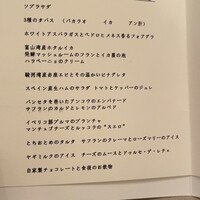 ソブラサダ
3種のタパス （バカラオ イカ アン肝）
ホワイトアスパラガスとペドロヒメネス香るフォアグラ
富山湾産ホタルイカ
発酵マッシュルームのフランとイカ墨の泡
ハラペーニョのクリーム
駿河湾産赤座エビとその温かいビナグレタ
スペイン産生ハムのサラダ トマトとケッパーのジュレ
パンセタを巻いたアンコウのエンパナード
サフランのカルドとレモンのアルベド
イベリコ豚プルマのブランチャ
マンチェゴチーズとルッコラの"スエロ"
とちおとめのタルタ サフランのクレーマとローズマリーのアイス
ヤギミルクのアイス チーズのムースとドゥルセ・デ・レチェ
自家製チョコレートと食後のお飲物